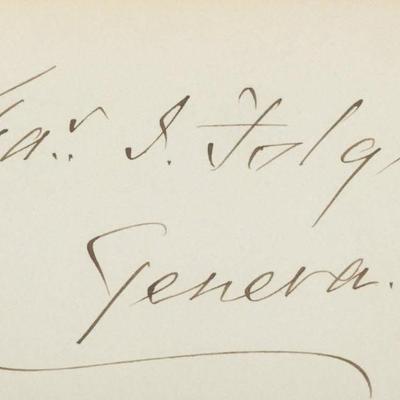 Chas. J. Folg
Geneva.